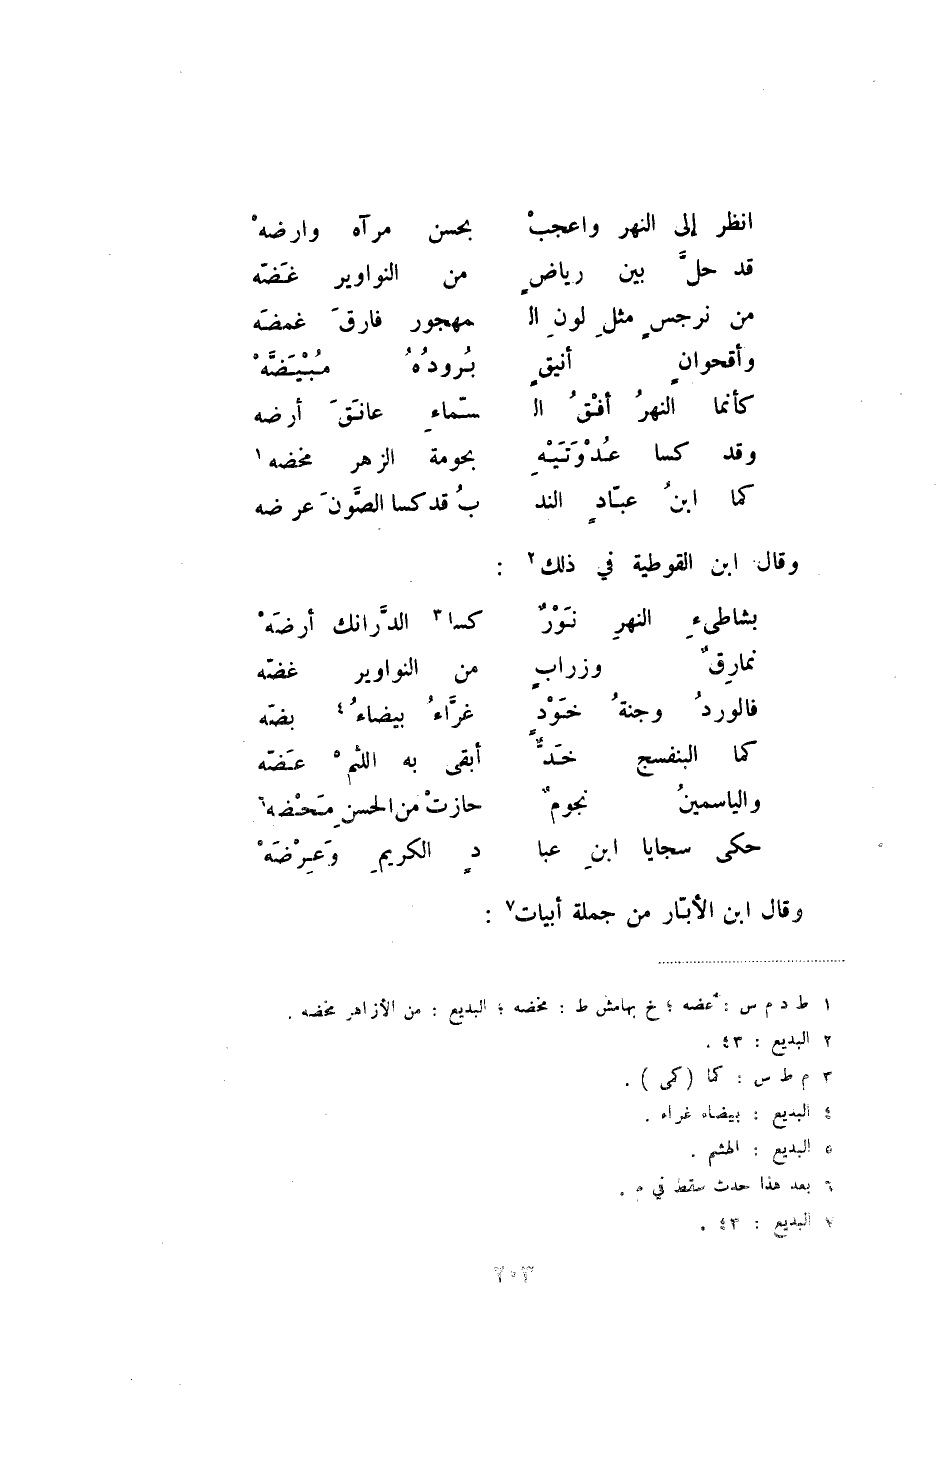 انظر إلى النهر واعجبْ بحسن مرآه وارضهْ
قد حلَّ بين رياضٍ من النواوير غَضّه
من نرجسٍ مثلِ لونِ الـ مهجور فارقَ غمضَه
وأقحوانٍ أنيقٍ بُرودُهُ مُبْيَضَّهْ
كأنما النهرُ أفْقُ الـ سّماءِ عانَقَ أرضه
وقد كسا عُدْوَتَيْهِ بحومة الزهر مخضه١
كما ابنُ عبّادٍ الند بُ قد كسا الصَّونَ عرضه
وقال ابن القوطية في ذلك٢ :
بشاطىءِ النهرِ نَوْرٌ كسا٣ الدَّرانك أرضَهْ
نمارِقٌ وزرابٍ من النواوير غضّه
فالوردُ وجنةُ خَوْدٍ غرَّاءُ بيضاءُ٤ بضّه
كما البنفسج خَدٌّ أبقى به اللثم٥ عَضّه
والياسمينُ نجومٌ حازتْ من الحسنِ مَحْضه٦
حكى سجايا ابنِ عبا دٍ الكريمِ وَعِرْضَهْ
وقال ابن الأبّار من جملة أبيات٧ :
١ ط د م س : عضه ؛ خ بهامش ط : مخضه ؛ البديع : من الأزاهر مخضه .
٢ البديع : ٤٣ .
٣ م ط س : كما (كى) .
٤ البديع : بيضاء غراء .
٥ البديع : الهشم .
٦ بعد هذا حدث سقط في م .
٧ البديع : ٤٣ .
٢٠٣